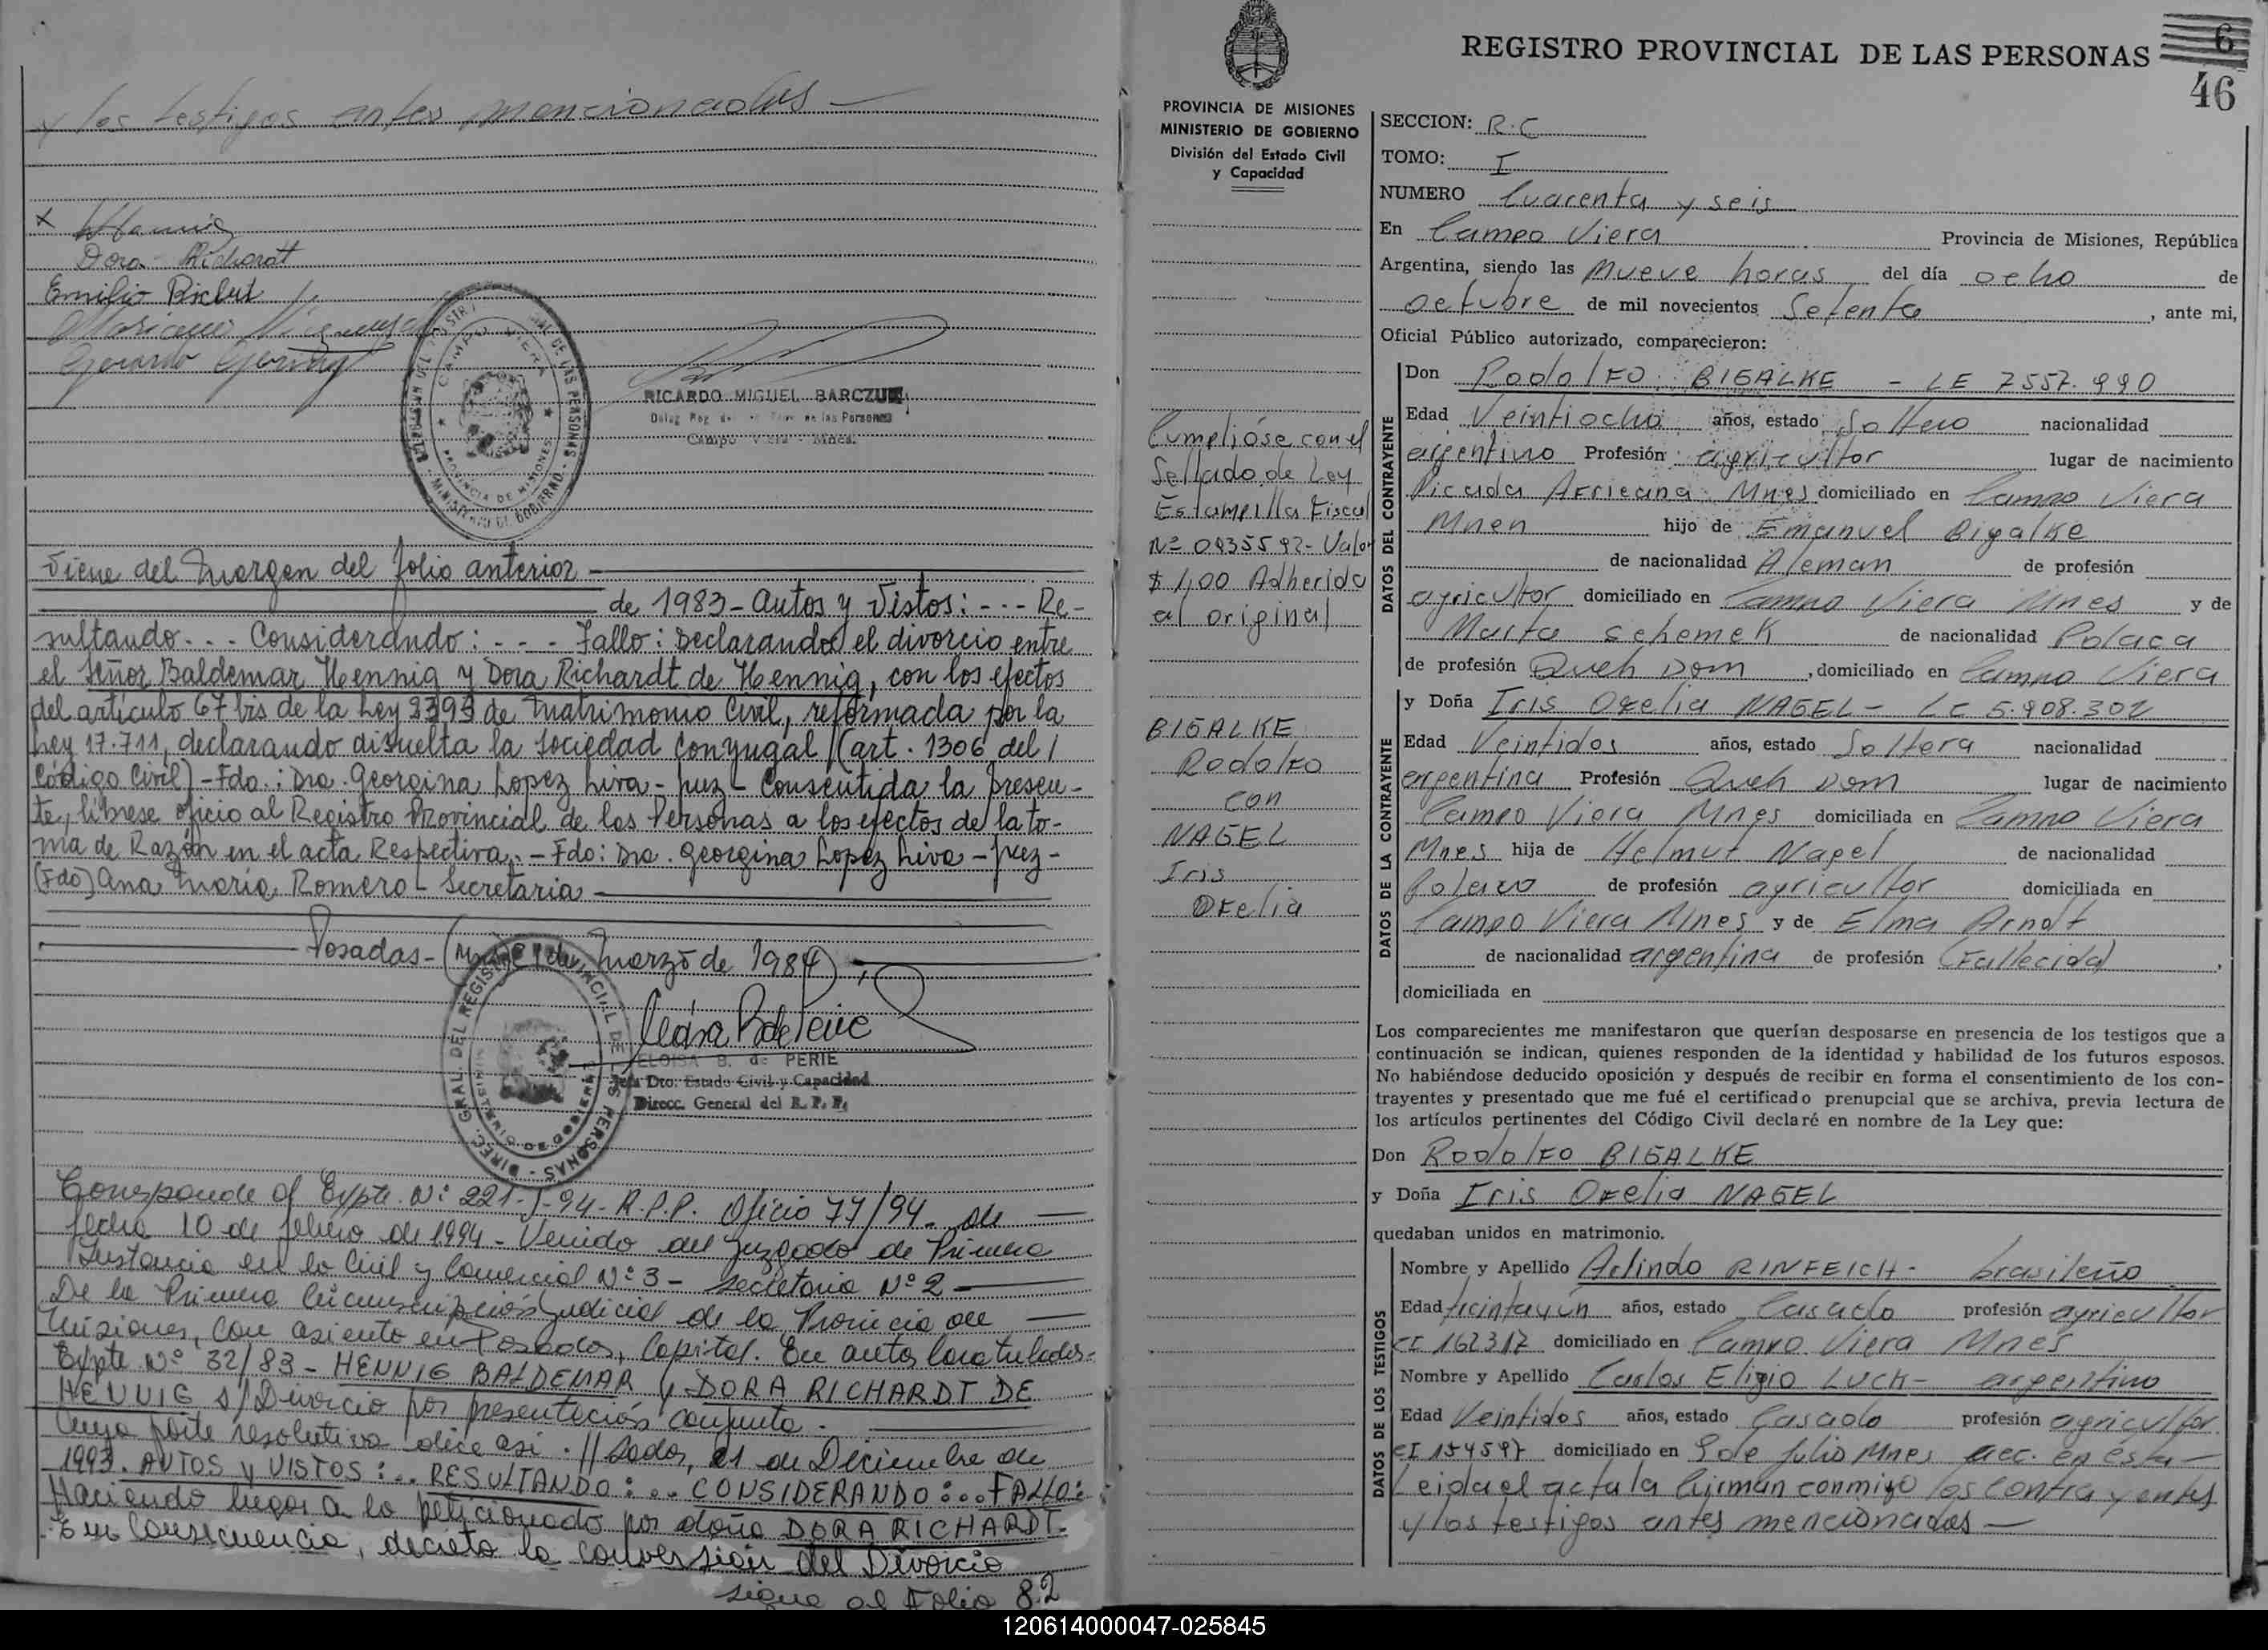 y los testigos antes mencionados —
x Hennig
Dora Richardt
Emilio Richert
Gerardo
CAMPO VIERA
PROVINCIA DE MISIONES
MINISTERIO DE GOBIERNO
RICARDO MIGUEL BARCZUK
Campo Viera - Mnes.
Viene del Margen del folio anterior —
— de 1983 - Autos y Vistos: - - - Re-
sultando - - - Considerando: - - - Fallo: Declarando el divorcio entre
el Señor Baldemar Hennig y Dora Richardt de Hennig, con los efectos
del artículo 67 bis de la Ley 2393 de Matrimonio Civil, reformada por la
Ley 17.711, declarando disuelta la Sociedad Conyugal (art. 1306 del /
Código Civil) - Fdo.: Dra. Georgina Lopez Liva - Juez - Consentida la presen-
te, líbrese oficio al Registro Provincial de las Personas a los efectos de la to-
ma de Razón en el acta Respectiva. - Fdo: Dra. Georgina Lopez Liva - Juez -
(Fdo) Ana María Romero - Secretaria —
— Posadas - Marzo de 1984 —
ELOISA B. de PERIE
Jefa Dto. Estado Civil y Capacidad
Direcc. General del R. P. P.
Corresponde al Expte. Nº 221-J-94-R.P.P. Oficio 77/94 - de —
fecha 10 de febrero de 1994 - Venido del Juzgado de Primera
Instancia en lo Civil y Comercial Nº 3 - Secretaria Nº 2 —
De la Primera Circunscripción Judicial de la Provincia de —
Misiones, con asiento en Posadas, Capital. En autos caratulados:
Expte Nº 32/83 - HENNIG BALDEMAR y DORA RICHARDT DE
HENNIG s/ Divorcio por presentación conjunta. —
Cuya parte resolutiva dice así: //sadas, 21 de Diciembre de
1993. AUTOS y VISTOS:... RESULTANDO:... CONSIDERANDO:... FALLO:
Haciendo lugar a lo peticionado por doña DORA RICHARDT.
En Consecuencia, decreto la conversión del Divorcio
sigue al Folio 82
REGISTRO PROVINCIAL DE LAS PERSONAS
6
46
PROVINCIA DE MISIONES
MINISTERIO DE GOBIERNO
División del Estado Civil
y Capacidad
Cumplióse con el
Sellado de Ley
Estampilla Fiscal
Nº 0935592- Valor
$ 1,00 Adherida
al original
BIGALKE
Rodolfo
con
NAGEL
Iris
Ofelia
SECCION: R.C
TOMO: I
NUMERO Cuarenta y seis
En Campo Viera Provincia de Misiones, República
Argentina, siendo las Nueve horas del día ocho de
octubre de mil novecientos Setenta, ante mi,
Oficial Público autorizado, comparecieron:
DATOS DEL CONTRAYENTE
Don Rodolfo BIGALKE - LE 7557.990
Edad Veintiocho años, estado Soltero nacionalidad
argentino Profesión agricultor lugar de nacimiento
Picada Africana Mnes domiciliado en Campo Viera
Mnen hijo de Emanuel Bigalke
de nacionalidad Aleman de profesión
agricultor domiciliado en Campo Viera Mnes y de
Marta Schemek de nacionalidad Polaca
de profesión Queh Dom, domiciliado en Campo Viera
DATOS DE LA CONTRAYENTE
y Doña Iris Ofelia NAGEL - LC 5.908.302
Edad Veintidos años, estado Soltera nacionalidad
argentina Profesión Queh Dom lugar de nacimiento
Campo Viera Mnes domiciliada en Campo Viera
Mnes hija de Helmut Nagel de nacionalidad
Polaco de profesión agricultor domiciliada en
Campo Viera Mnes y de Elma Arnolt
de nacionalidad argentina de profesión (Fallecida),
domiciliada en
Los comparecientes me manifestaron que querían desposarse en presencia de los testigos que a
continuación se indican, quienes responden de la identidad y habilidad de los futuros esposos.
No habiéndose deducido oposición y después de recibir en forma el consentimiento de los con-
trayentes y presentado que me fué el certificado prenupcial que se archiva, previa lectura de
los artículos pertinentes del Código Civil declaré en nombre de la Ley que:
Don Rodolfo BIGALKE
y Doña Iris Ofelia NAGEL
quedaban unidos en matrimonio.
DATOS DE LOS TESTIGOS
Nombre y Apellido Arlindo RINFEICH - brasileño
Edad treintayún años, estado Casado profesión agricultor
CI 162317 domiciliado en Campo Viera Mnes
Nombre y Apellido Carlos Eligio LUCH - argentino
Edad Veintidos años, estado Casado profesión agricultor
CI 154597 domiciliado en 9 de Julio Mnes acc. en esta —
Leida el acta la firman conmigo los contrayentes
y los testigos antes mencionados —
120614000047-025845